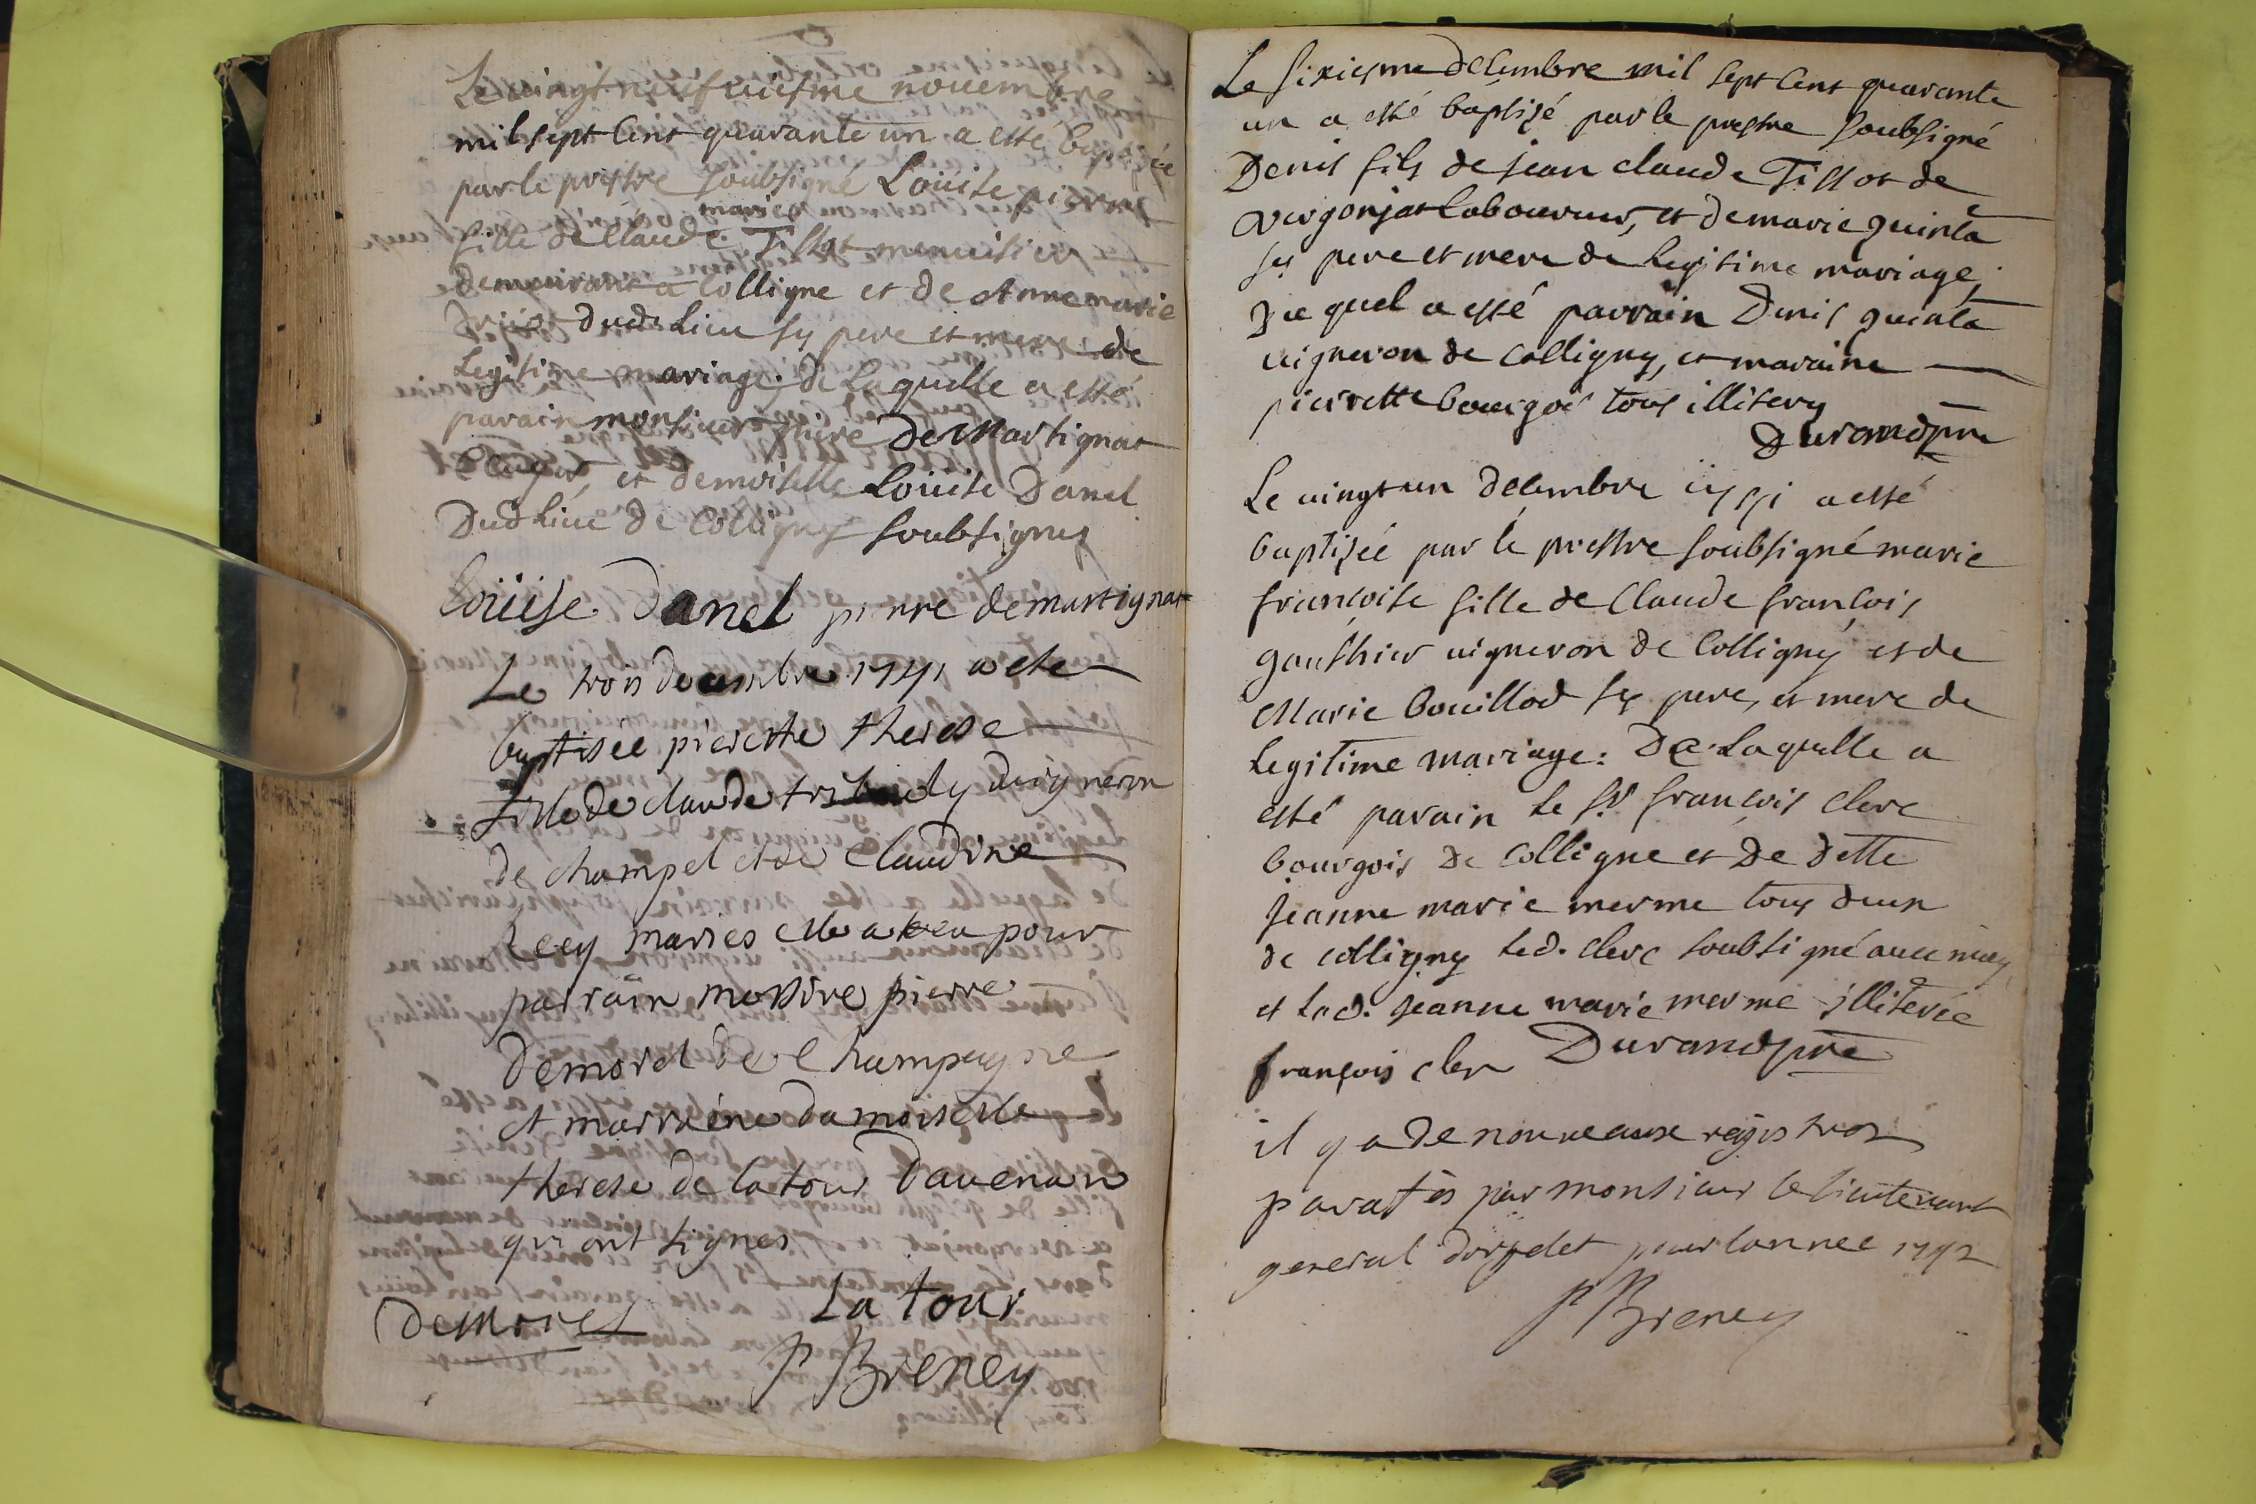 Le vingt neufuiesme novembre
mil sept Cent quarante un a esté baptisée
par le prestre soubsigné Loüise pierrette
marie
fille de Claude Tissot menuisier
demeurant a Colligne et de Anne marie
dud. Lieu ses pere et mere de
Legitime mariage; de Laquelle a esté
parain monsieur piere De Martignat
et demoiselle Loüise Danel
Dud Lieu de Colligny soubsignes
Loüise Danel pierre demartignat
Le trois decembre 1741 a ete
baptisee pierette therese
fille de claude vigneron
de champel et de Claudine
maries elle a eu pour
parrain messire pierre
Demorel de Champagne
et marraine damoiselle
therese de latour Davenan
qui ont signes
Demorel La tour
P Breney
Le sixiesme decembre mil sept Cent quarante
un a esté baptisé par le prestre soubsigné
Denis fils de jean claude Tissot de
vergonjat Laboureur, et de marie quinta
ses pere et mere de Legitime mariage;
Du quel a esté parrain Denis quinta
vigneron de Colligny, et maraine
pierrette bourgois tous illiteres
Durand pre
Le vingt un decembre 1741 a esté
baptisée par le prestre soubsigné marie
françoise fille de Claude françois
gauthier vigneron de Colligny et de
Marie bouillod ses pere, et mere de
Legitime mariage: De Laquelle a
esté parain Le Sr. françois Clerc
bourgois de Colligne et De dette
jeanne marie merme tous deux
de Colligny Led. Clerc soubsigné avec moy
et Lad. jeanne marie merme illiterée
françois cler Durand pre
il y a de nouveaux registres
parafés par monsieur le lieutenant
general dorgelet pour lannee 1742
P Breney